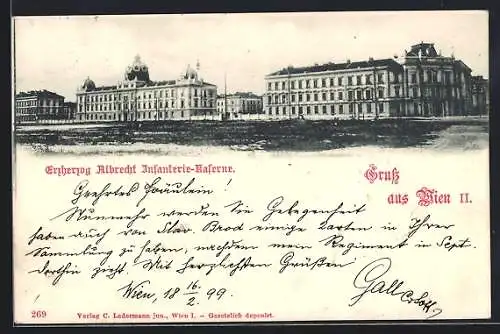 Erzherzog Albrecht Infanterie-Kaserne.
Gruß
aus Wien II.
Geehrtes Fräulein!
Nunmehr werden Sie Gelegenheit
haben auch von Slav. Brod einige Karten in Ihrer
Sammlung zu haben, nachdem mein Regiment im Sept.
dorthin zieht. Mit herzlichsten Grüßen
Wien, 18 16/2 99.
Gall
269
Verlag C. Ledermann jun., Wien I. – Gesetzlich deponirt.